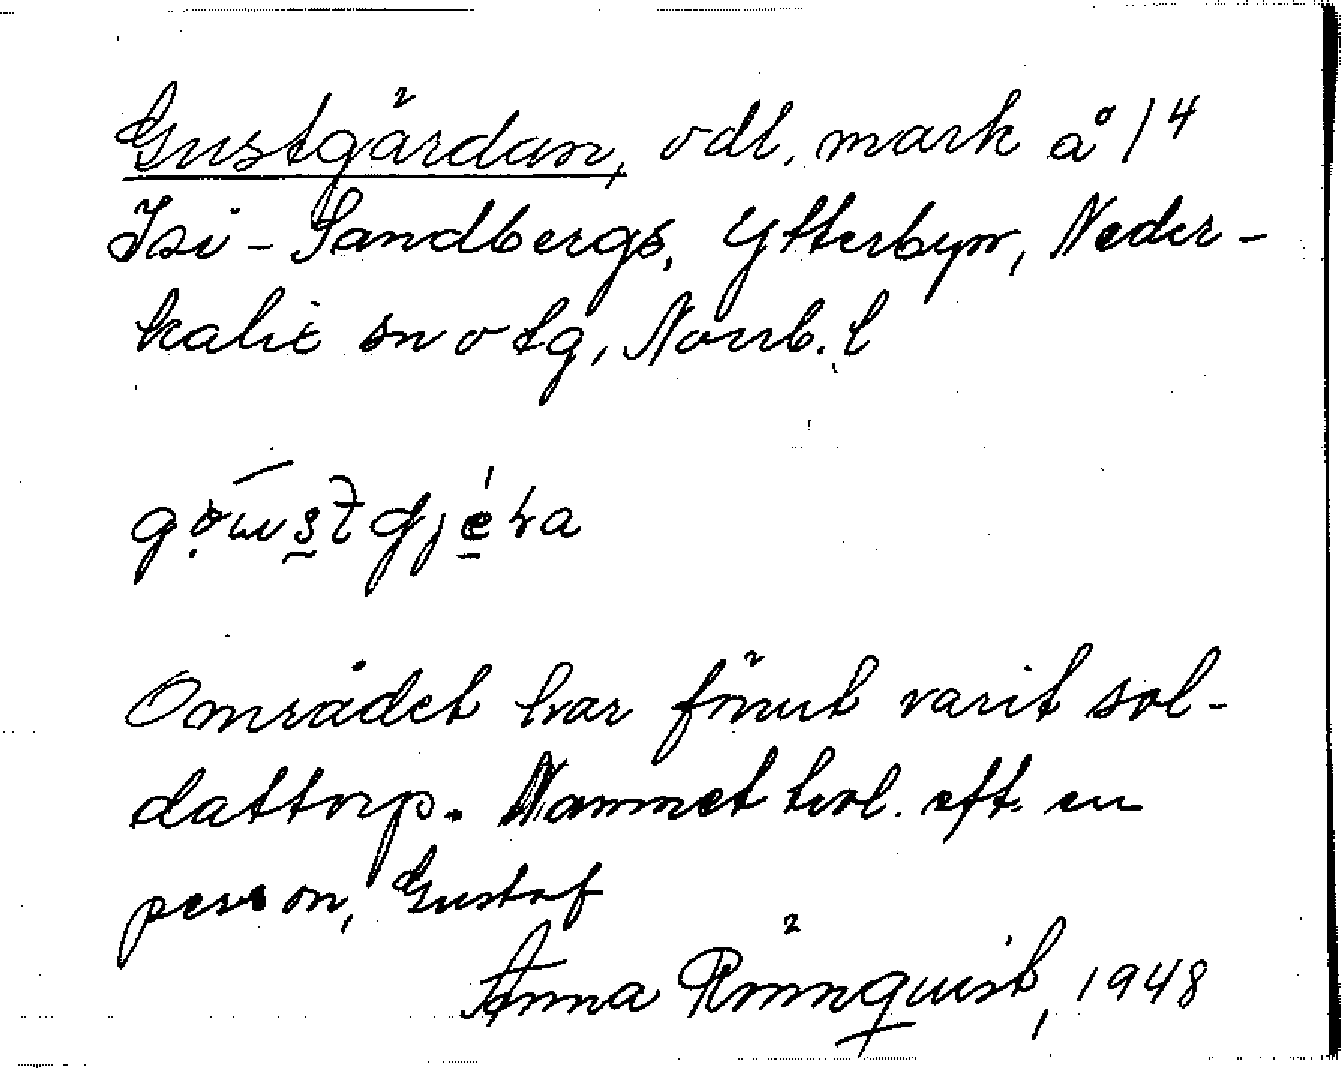 Gustgärdan, odl. mark å 1 4
Isi - Sandbergs, Ytterbyn, Neder-
kalix sn o tg, Norrb. l
Området har förut varit sol-
dattorp. Namnet trol. eft. en
person, Gustaf
Anna Rönnquist, 1948